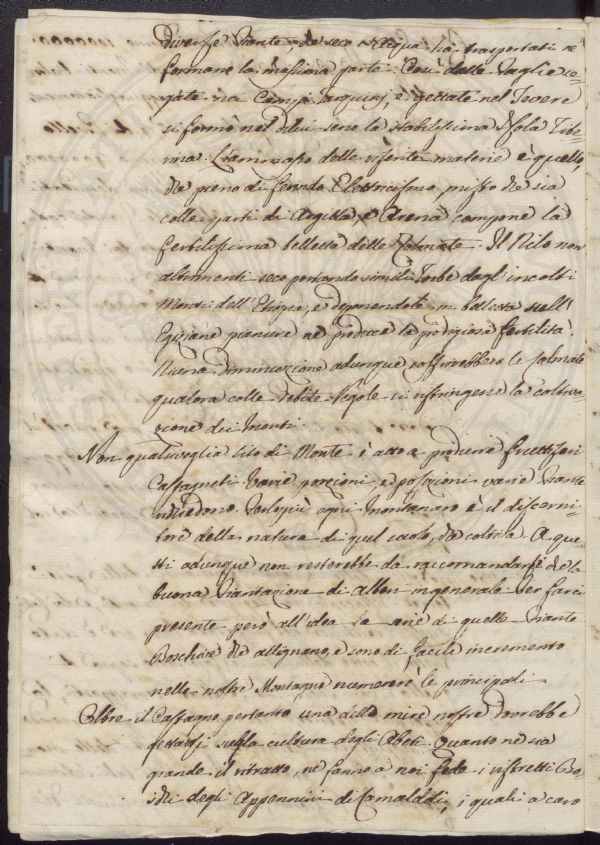 diverse Piante, che seco l'Acqua ha trasportati ne
formano la massima parte. Così dalle Paglie se-
gate nei Campi Tarquinj, e gettate nel Tevere
si formò nel di lui seno la stabilissima Isola Tibe-
rina. L'ammasso delle riferite materie è quello,
che pieno di fecondo Elettricismo, misto che sia
colle parti di Argilla, e Arena compone la
fertilissima belletta delle Colmate. Il Nilo non
altrimenti seco portando simili Torbe dagl'incolti
Monti dell'Etiopia, e deponendole in belletta nell'
Egiziane pianure ne produce la prodigiosa fertilità.
Niuna diminuzione adunque soffrirebbero le Colmate
qualora colle debite Regole si restringesse la coltiva-
zione dei Monti.
Non qualsivoglia sito di Monte è atto a produrre fruttiferi
Castagneti. Varie porzioni, e posizioni varie Piante
richiedono. Per lo più ogni montanaro è il discerni-
tore della natura di quel suolo, che coltiva. A que-
sti adunque non resterebbe da raccomandarsi che la
buona Piantagione di alberi in generale. Per farci
presente però all'idea la serie di quelle Piante
Boschive che allignano, e sono di facile incremento
nelle nostre Montagne numererò le principali.
Oltre il Castagno pertanto una delle mire nostre dovrebbe
gettarsi sulla cultura degli Abeti. Quanto ne sia
grande il ritratto, ne fanno a noi fede i ristretti Bo-
schi degli Appennini di Camaldoli, i quali a caro